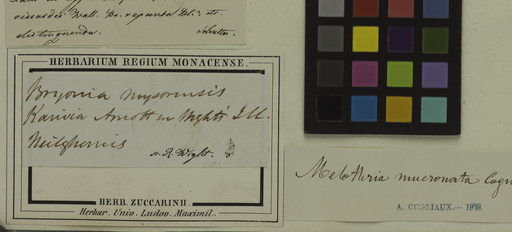 Wall. Br. repanda Bl.
distinguenda. Schultes.
HERBARIUM REGIUM MONACENSE.
Bryonia mysorensis
Karivia Arnott in Wight's Ill.
Neilgherries
R. Wight.
HERB. ZUCCARINII.
Herbar. Univ. Ludov. Maximil.
Melothria mucronata Cogn
A. COGNIAUX.— 1879